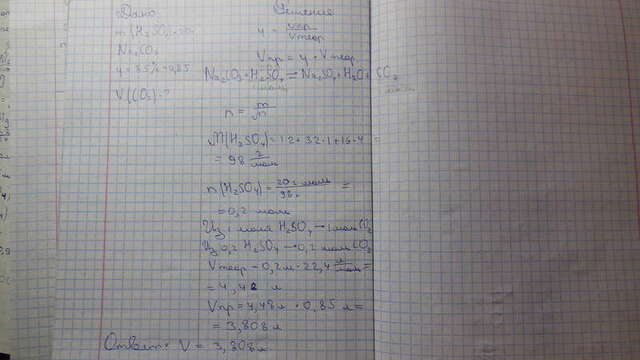 Дано
Решение
m(H₂SO₄)=20г
Na₂CO₃
η=85%=0,85
V(CO₂)-?
η = Vпр/Vтеор
Vпр = η · Vтеор
Na₂CO₃+H₂SO₄=Na₂SO₄+H₂O+CO₂
n = m/M
M(H₂SO₄)=1·2+32·1+16·4 =
= 98 г/моль
n(H₂SO₄)= 20г моль/98г =
=0,2 моль
Из 1 моля H₂SO₄→1 моль CO₂
Из 0,2 H₂SO₄→0,2 моль CO₂
Vтеор = 0,2м·22,4 л/моль =
= 4,48 л
Vпр=4,48л · 0,85 л=
= 3,808л
Ответ: V = 3,808л.